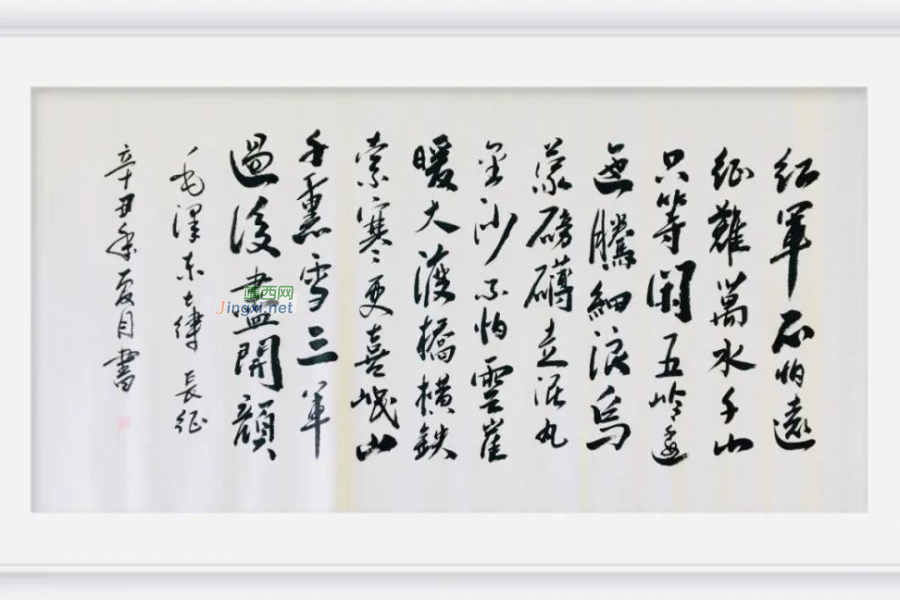 红軍不怕遠
征難萬水千山
只等閑五岭逶
迤騰細浪烏
蒙磅礴走泥丸
金沙水拍雲崖
暖大渡橋橫鉄
索寒更喜岷山
千里雪三軍
過後盡開顔
毛澤东七律 長征
辛丑年夏月書
靖西网
Jingxi.net